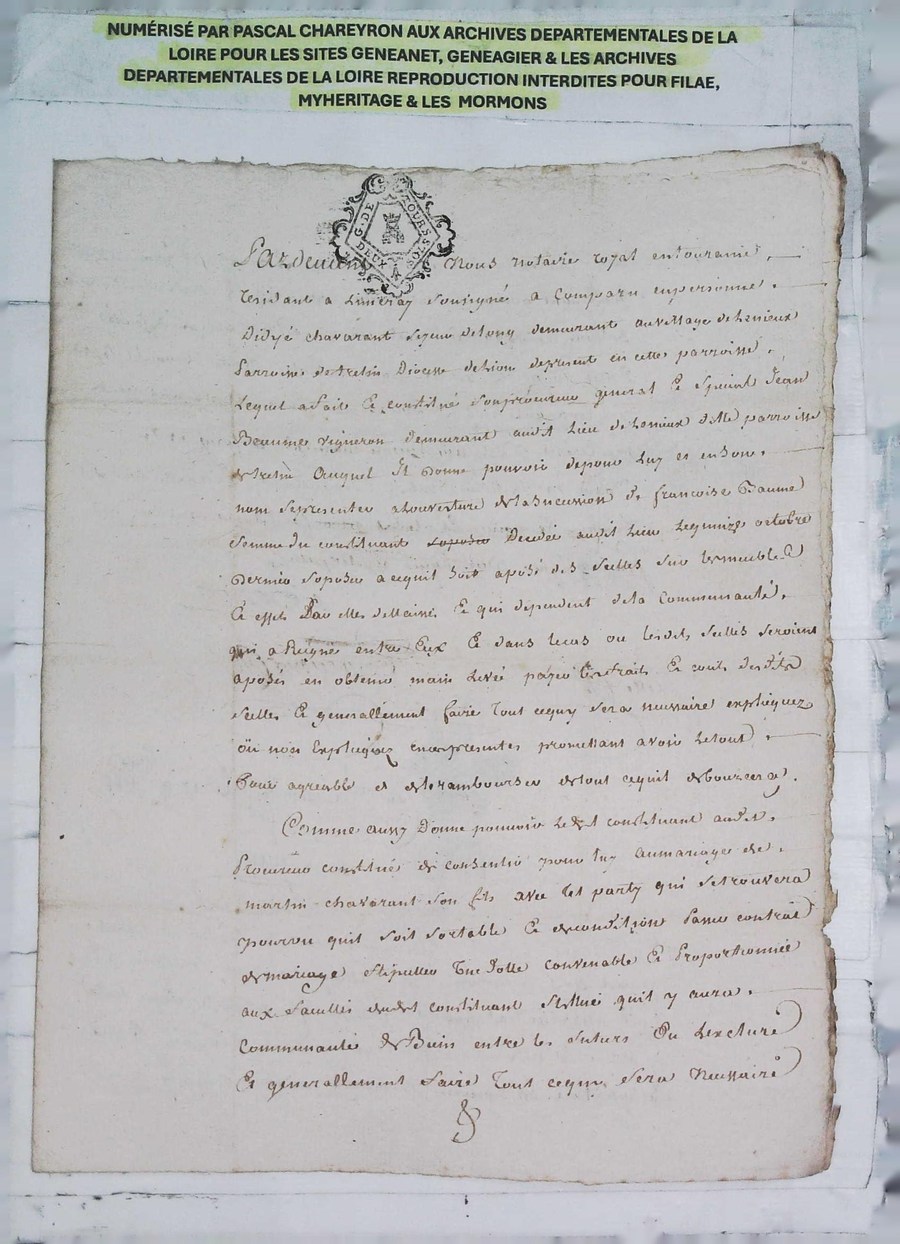 NUMÉRISÉ PAR PASCAL CHAREYRON AUX ARCHIVES DEPARTEMENTALES DE LA
LOIRE POUR LES SITES GENEANET, GENEAGIER & LES ARCHIVES
DEPARTEMENTALES DE LA LOIRE REPRODUCTION INTERDITES POUR FILAE,
MYHERITAGE & LES MORMONS
G. DE TOURS
DEUX SOLS
Pardevant Nous notaire royal entouraine
residant a Limeray sousigné a Comparu enpersonne
Didyé chavarant demeurant auvillage de Lenieux
Parroisse de tretin Diocesse delion depresent en cette parroisse
Lequel afait Et constitué sonprocureur general Et speciat Jean
Beaume vigneron demeurant audit Lieu de Lenieux ditte parroisse
detretin auquel Il donne pouvoir depour Luy et enson
nom sepresenter alouverture delasucession de francoise Baume
femme du constituant Decedée audit Lieu Lequinze octobre
Dernier soposer acequil soit aposé des seelles sur lesmeubles
Et effets dellaissé Et qui dependent dela Communauté
qui a Reigné entre Eux Et dans lecas ou lesdits seelles seroient
aposés en obtenir main Levée payer les frais Et couts desdits
seelles Et generallement faire tout cequy sera necessaire expliquez
ou non Expliquez ences presentes promettant avoir Letout
Pour agreable et deleramboursser detout cequil debourcera
Comme aussy Donne pouvoir ledit constituant audit
Procureur constitué de consentir pour luy aumariage de
martin chavarant son fils avec tel party qui setrouvera
pourvu quil soit sortable Et decondition Passer contrat
demariage stipuller une Dotte convenable Et Proportionnée
aux facultés dudit constituant quil y aura
Communauté de Biens entre les futurs Ou
Et generallement faire tout cequy sera Necessaire